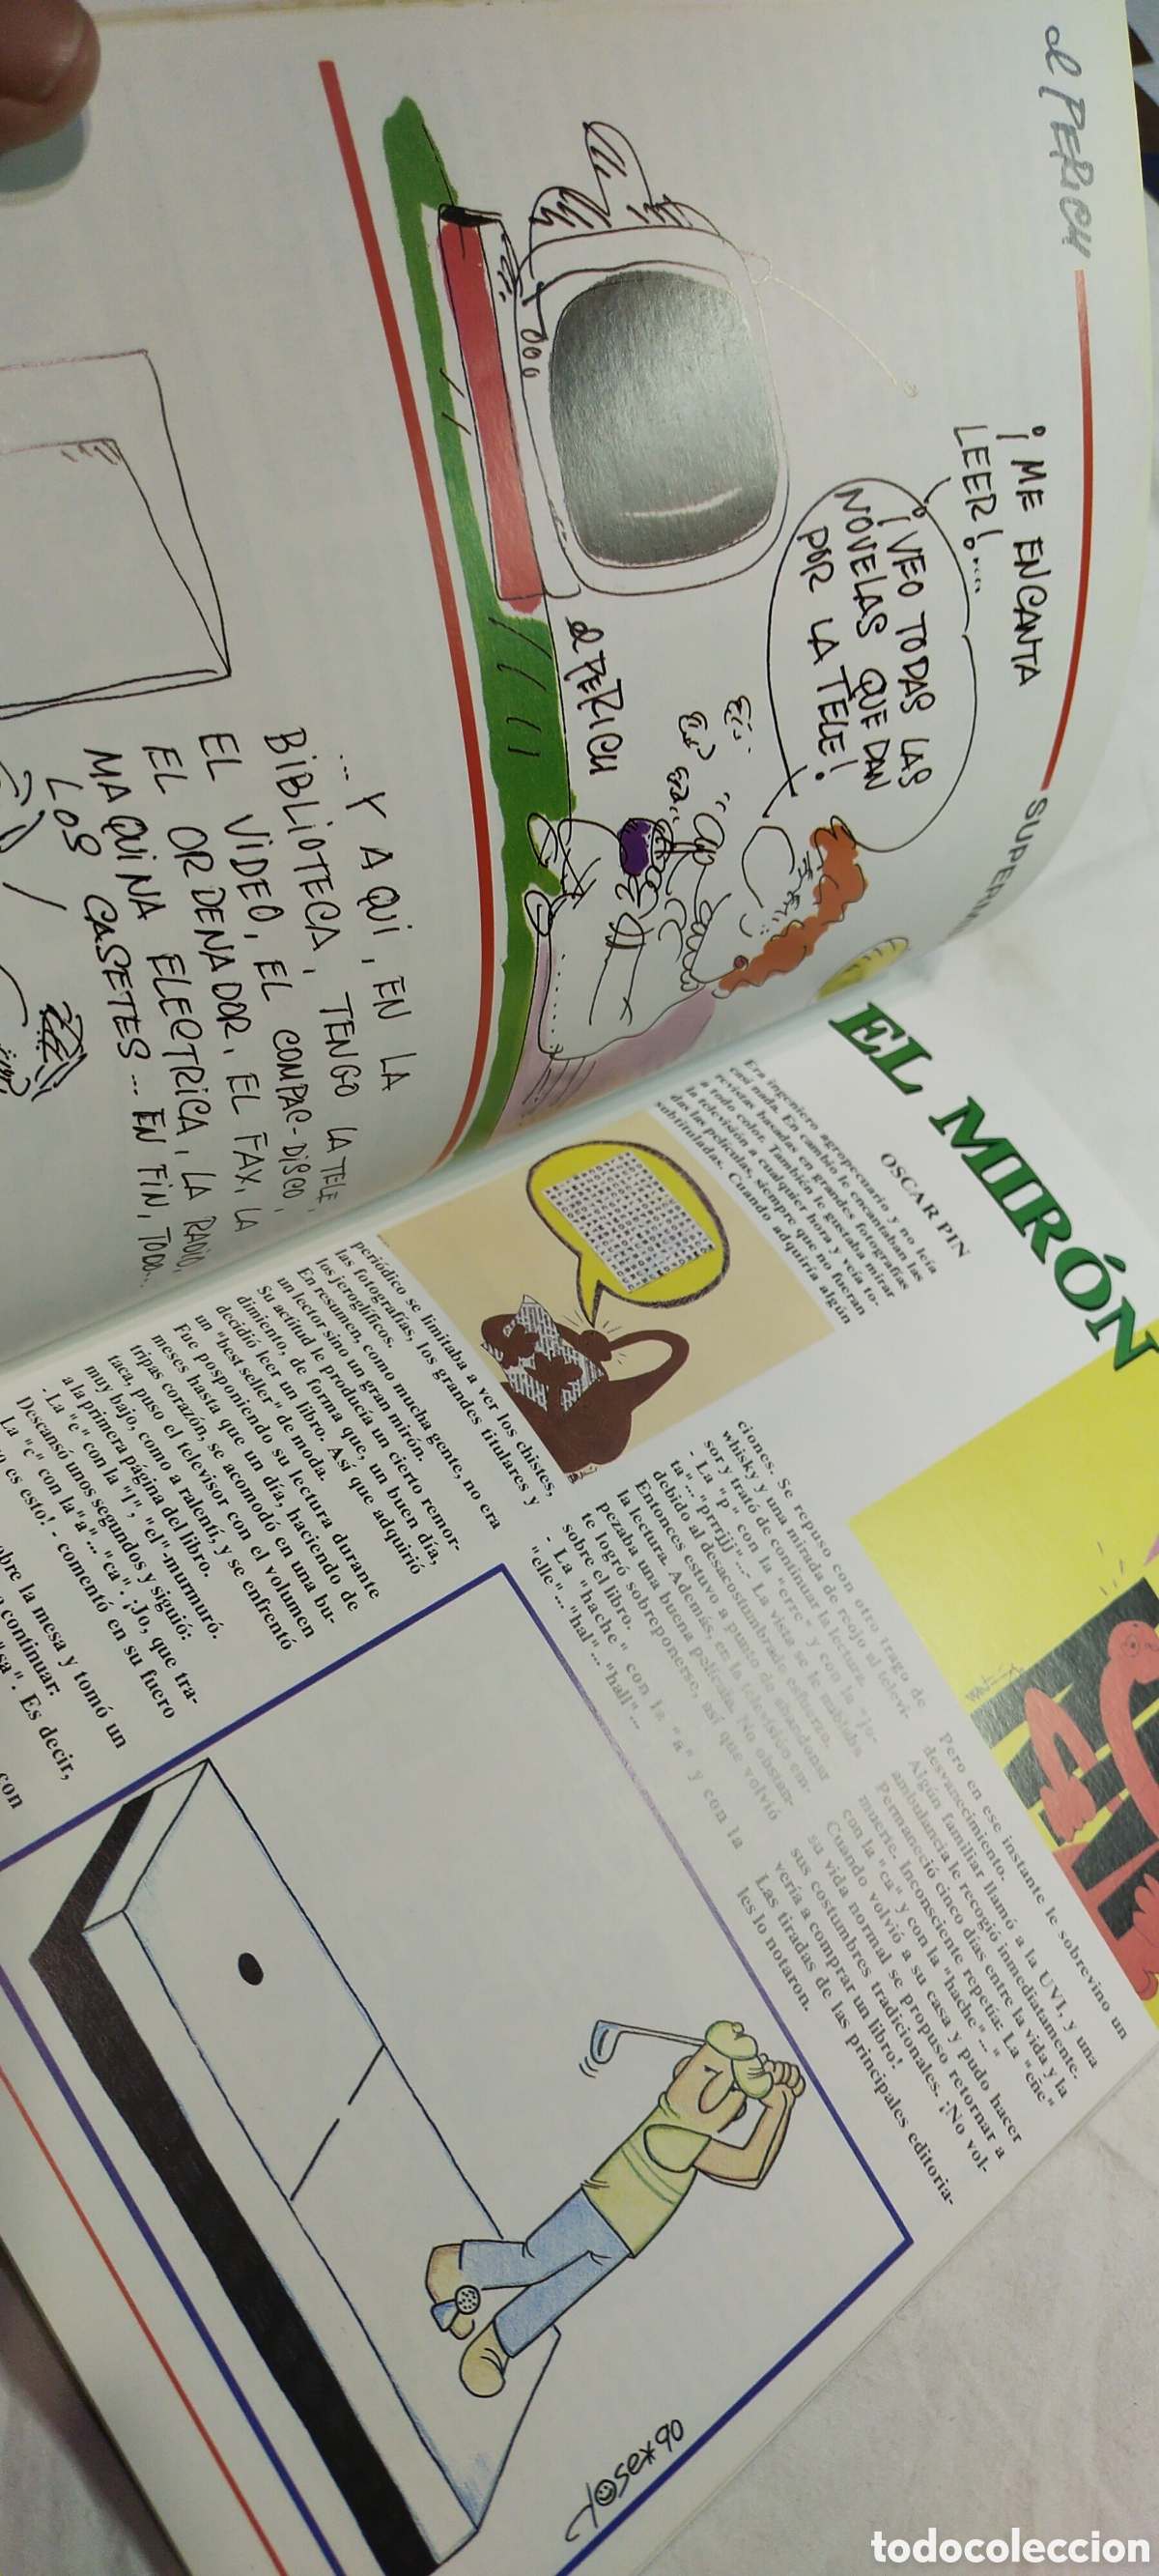 el PERICH
¡ME ENCANTA
LEER!...
¡VEO TODAS LAS
NOVELAS QUE DAN
POR LA TELE!
el PERICH
... Y AQUI, EN LA
BIBLIOTECA, TENGO LA TELE,
EL VIDEO, EL COMPAC-DISCO,
EL ORDENADOR, EL FAX, LA
MAQUINA ELECTRICA, LA RADIO,
LOS CASETES... EN FIN, TODO...
EL MIRÓN
OSCAR PIN
Era ingeniero agropecuario y no leía
casi nada. En cambio le encantaban las
revistas basadas en grandes fotografías
a todo color. También le gustaba mirar
la televisión a cualquier hora y veía to-
das las películas, siempre que no fueran
subtituladas. Cuando adquiría algún
periódico se limitaba a ver los chistes,
las fotografías, los grandes titulares y
los jeroglíficos.
En resumen, como mucha gente, no era
un lector sino un gran mirón.
Su actitud le producía un cierto remor-
dimiento, de forma que, un buen día,
decidió leer un libro. Así que adquirió
un "best seller" de moda.
Fue posponiendo su lectura durante
meses hasta que un día, haciendo de
tripas corazón, se acomodó en una bu-
taca, puso el televisor con el volumen
muy bajo, como a ralentí, y se enfrentó
a la primera página del libro.
- La "e" con la "l", "el"-murmuró.
Descansó unos segundos y siguió:
La "c" con la "a"... "ca"; ¡Jo, que tra-
es esto! - comentó en su fuero
sobre la mesa y tomó un
continuar:
"sa". Es decir,
con
ciones. Se repuso con otro trago de
whisky y una mirada de reojo al televi-
sor y trató de continuar la lectura.
- La "p" con la "erre" y con la "jo-
ta"... "prrjjj"... La vista se le nublaba
debido al desacostumbrado esfuerzo.
Entonces estuvo a punto de abandonar
la lectura. Además, en la televisión em-
pezaba una buena película. No obstan-
te logró sobreponerse, así que volvió
sobre el libro.
- La "hache" con la "a" y con la
"elle"... "hal"... "hall"...
Pero en ese instante le sobrevino un
desvanecimiento.
Algún familiar llamó a la UVI, y una
ambulancia le recogió inmediatamente.
Permaneció cinco días entre la vida y la
muerte. Inconsciente repetía: La "eñe"
con la "ca" y con la "hache"..."
Cuando volvió a su casa y pudo hacer
su vida normal se propuso retornar a
sus costumbres tradicionales. ¡No vol-
vería a comprar un libro!
Las tiradas de las principales editoria-
les lo notaron.
90
todocoleccion